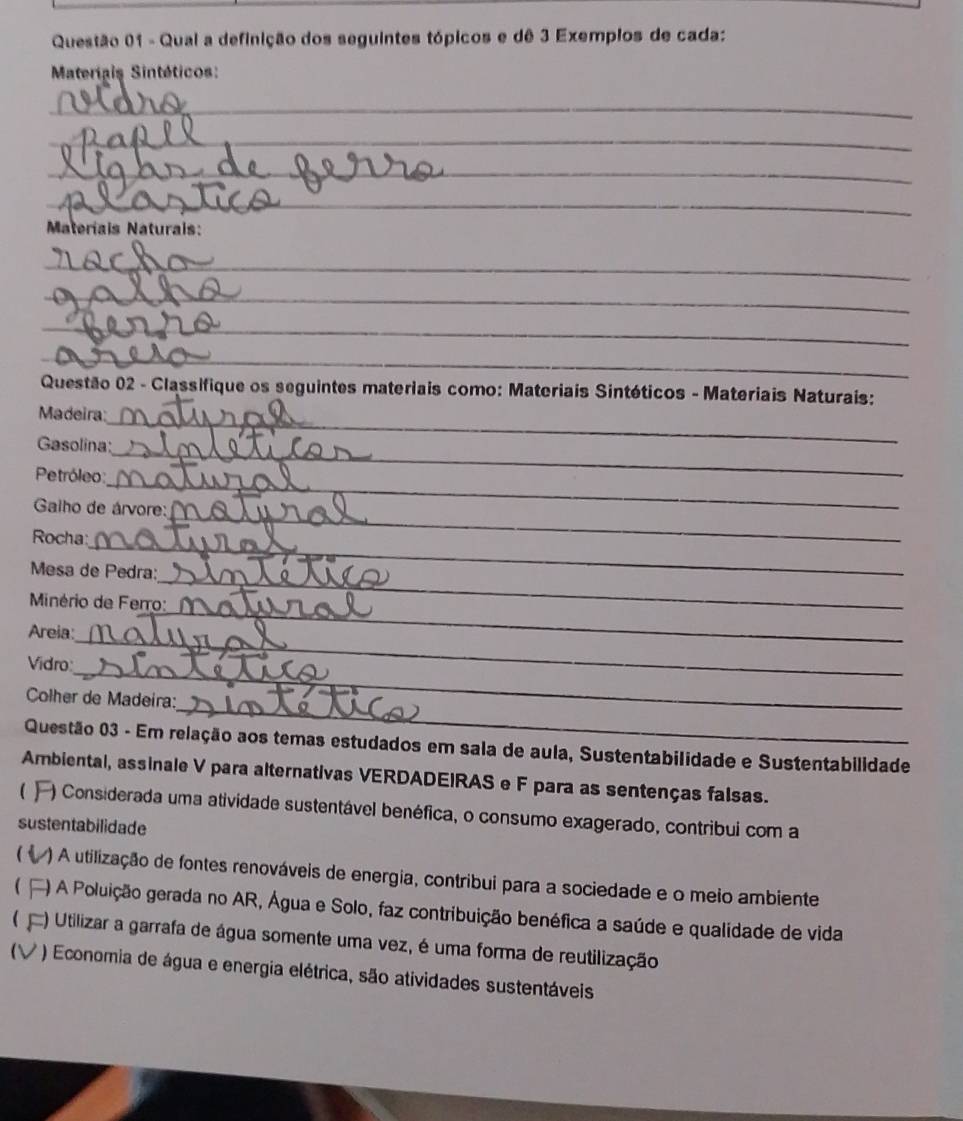 Questão 01 - Qual a definição dos seguintes tópicos e dê 3 Exemplos de cada:
Materiais Sintéticos:
vidro
papel
ligas de ferro
plastico
Materiais Naturais:
racho
galho
ferro
areia
Questão 02 - Classifique os seguintes materiais como: Materiais Sintéticos - Materiais Naturais:
Madeira: natural
Gasolina: sintéticos
Petróleo: natural
Galho de árvore: natural
Rocha: natural
Mesa de Pedra: sintético
Minério de Ferro: natural
Areia: natural
Vidro: sintético
Colher de Madeira: sintético
Questão 03 - Em relação aos temas estudados em sala de aula, Sustentabilidade e Sustentabilidade
Ambiental, assinale V para alternativas VERDADEIRAS e F para as sentenças falsas.
( F ) Considerada uma atividade sustentável benéfica, o consumo exagerado, contribui com a
sustentabilidade
( V ) A utilização de fontes renováveis de energia, contribui para a sociedade e o meio ambiente
( F ) A Poluição gerada no AR, Água e Solo, faz contribuição benéfica a saúde e qualidade de vida
( F ) Utilizar a garrafa de água somente uma vez, é uma forma de reutilização
( V ) Economia de água e energia elétrica, são atividades sustentáveis